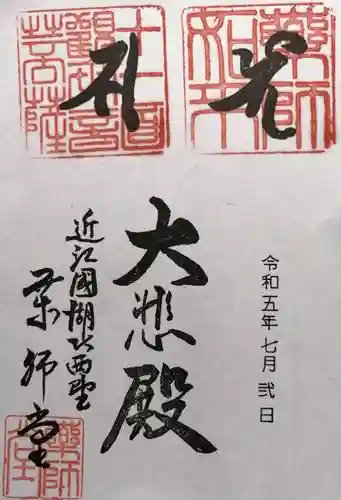 十一面
觀世音
菩薩
藥師
如来
令和五年七月弐日
大悲殿
近江國湖西聖
薬師堂
藥師
堂